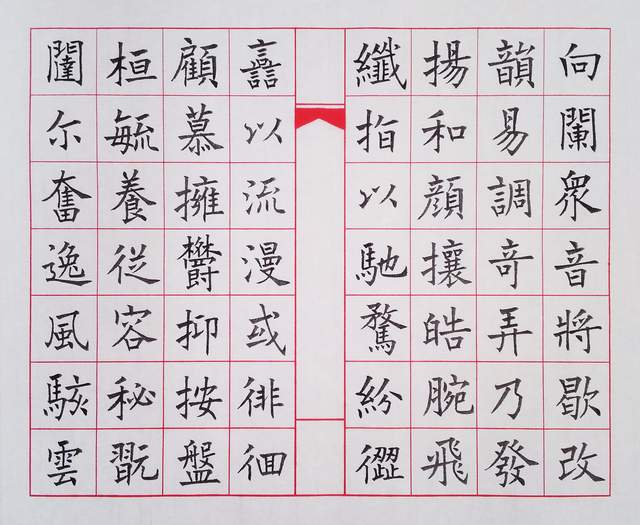 向闌衆音將歇改
韻易調竒弄乃發
揚和顔攘皓腕飛
纖指以馳騖紛
譶以流漫或徘徊
顧慕擁鬱抑按盤
桓毓養從容秘翫
闥尔奮逸風駭雲